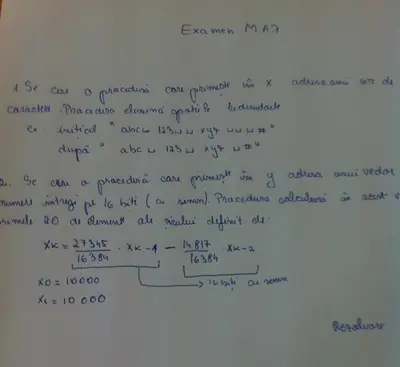 Examen MA7
1. Se cere o procedură care primește în X adresa unui șir de
caractere. Procedura elimină spațiile redundante
ex: inițial "abc␣ 123␣␣ xyz ␣␣␣
după "abc␣ 123␣ xyz ␣
2. Se cere o procedură care primește în y adresa unui vector
numere întregi pe 16 biți (cu semn). Procedura calculează în acest
primele 20 de element ale șirului definit de:
XK = 27345/16384 · XK-1 − 14817/16384 XK-2
→ 16 biți cu semn
X0 = 10000
X1 = 10 000
Rezolvare